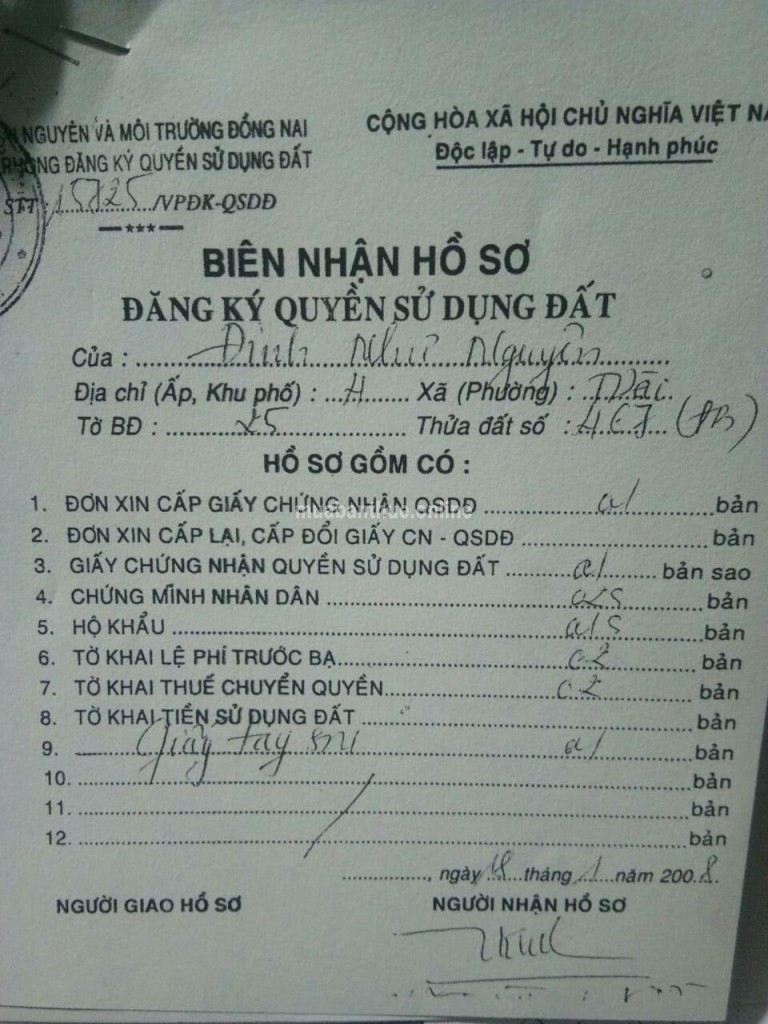 NGUYÊN VÀ MÔI TRƯỜNG ĐỒNG NAI
CỘNG HÒA XÃ HỘI CHỦ NGHĨA VIỆT
ĐĂNG KÝ QUYỀN SỬ DỤNG ĐẤT
Độc lập - Tự do - Hạnh phúc
STT: 15725 /VPĐK-QSDĐ
***
BIÊN NHẬN HỒ SƠ
ĐĂNG KÝ QUYỀN SỬ DỤNG ĐẤT
Của : Đinh Như Nguyên
Địa chỉ (Ấp, Khu phố) : 4 Xã (Phường) :
Tờ BĐ : 25 Thửa đất số : 467
HỒ SƠ GỒM CÓ :
1. ĐƠN XIN CẤP GIẤY CHỨNG NHẬN QSDĐ 01 bản
muabannhadat.online
2. ĐƠN XIN CẤP LẠI, CẤP ĐỔI GIẤY CN - QSDĐ bản
3. GIẤY CHỨNG NHẬN QUYỀN SỬ DỤNG ĐẤT 01 bản sao
4. CHỨNG MÌNH NHÂN DÂN 02S bản
5. HỘ KHẨU 01S bản
6. TỜ KHAI LỆ PHÍ TRƯỚC BẠ 02 bản
7. TỜ KHAI THUẾ CHUYỂN QUYỀN 02 bản
8. TỜ KHAI TIỀN SỬ DỤNG ĐẤT bản
9. Giấy tay 01 bản
10. bản
11. bản
12. bản
, ngày 18 tháng 1 năm 2008.
NGƯỜI GIAO HỒ SƠ NGƯỜI NHẬN HỒ SƠ